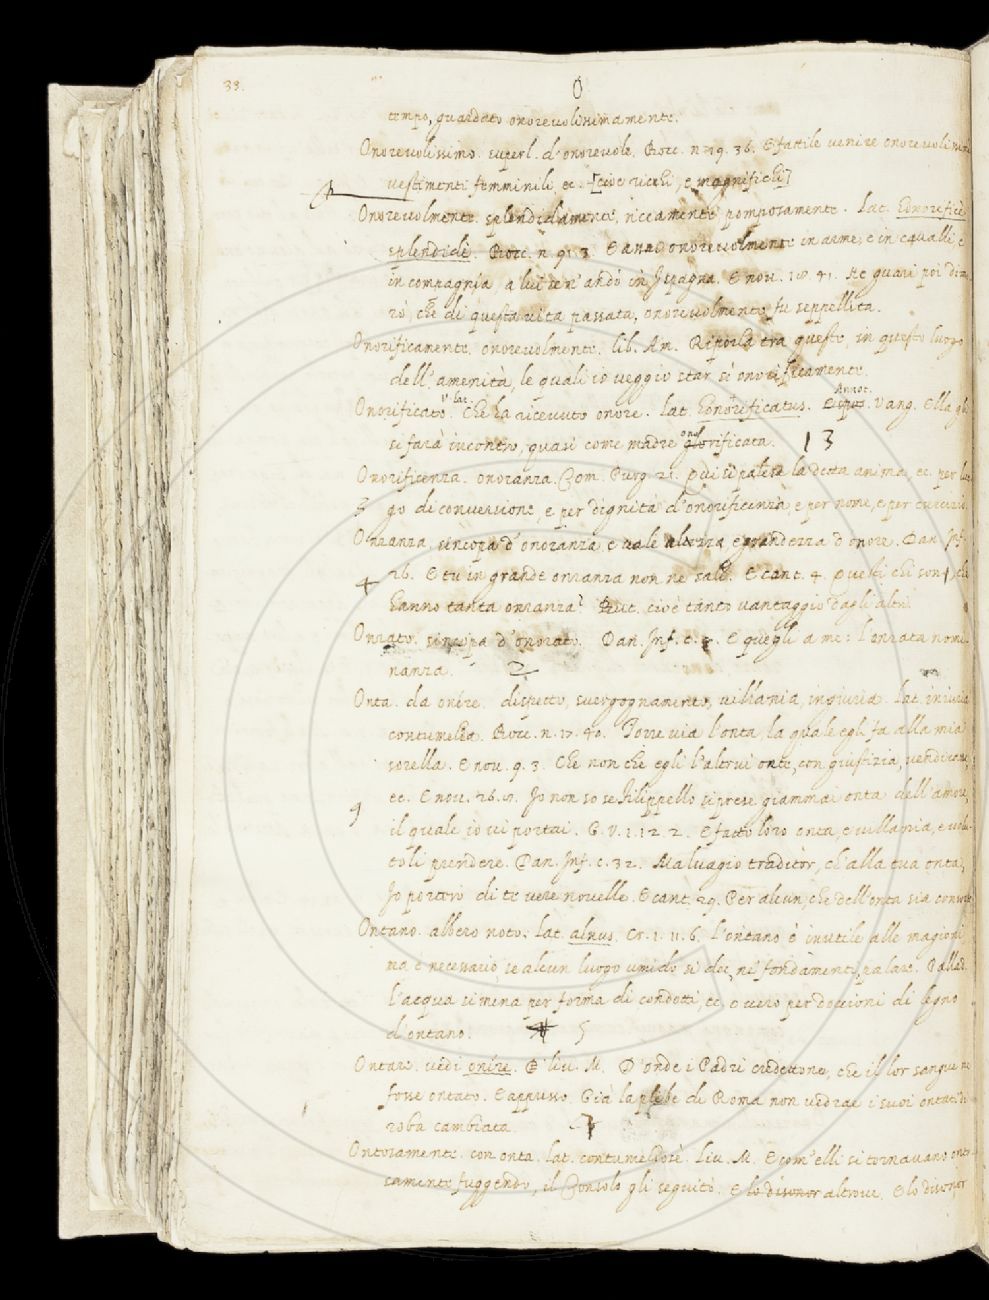 33.
O
tempo, guardato onorevolissimamente.
Onorevolissimo. superl. d'onorevole. Bocc. n. 19. 36. E fattile venire onorevolissimi
vestimenti femminili, ec. [cioè ricchi, e magnifichi]
Onorevolmente. splendidamente, riccamente, pomposamente. Lat. honorificè
splendidè. Bocc. n. 91. 3. E assai onorevolmente in arme, e in cavalli, e
in compagnia, a lui se n'andò in Ispagna. E nov. 41. Ne guari poi
rò, che di questa vita passata, onorevolmente fu seppellita.
Onorificamente. onorevolmente. lib. Am. Riposla tra queste, in questo luogo
dell'amenità, le quali io veggio star sì onorificamente.
Annot.
v. lat.
Onorificato. Che ha ricevuto onore. lat. honorificatus. Vang. Ella gli
si farà incontro, quasi come madre onorificata. 13
Onorificenza. onoranza. Com. Purg. 21. Qui si palesa la detta anima, ec. per luo
3 go di conversione, e per dignità d'onorificenza, e per nome, e per
Orranza, sincopa d'onoranza, e vale altezza, e grandezza d'onore. Dan. Inf.
26. E tu in grande orranza non ne sali. E cant. 4. Questi chi son, ch'
4
hanno tanta orranza? But. cioè tanto vantaggio dagli altri.
Orrato. sincopa d'onorato. Dan. Inf. c. E quegli a me: l'orrata nomi-
nanza. 2
Onta. da onire. dispetto, svergognamento, villania, ingiuria. lat. iniuria
contumelia. Bocc. n. 17. 40. Torre via l'onta, la quale egli fa alla mia
sorella. E nov. 9. 3. Che non che egli l'altrui onte, con giustizia, vendicasse,
ec. E nov. 26. Io non so se Filippello si prese giammai onta dell'amore,
9
il quale io vi portai. G. V. 1. 12. 2. E fatto loro onta, e villania, e
toli prendere. Dan. Inf. c. 32. Malvagio traditor, ch'alla tua onta,
Io porterò di te vere novelle. E cant. 29. Per alcun, che dell'onta sia consorte
Ontano. albero noto. lat. alnus. Cr. 1. 11. 6. l'ontano è inutile alle magioni
ma è necessario, se alcun luogo umido si dee, ne' fondamenti, palare. Pallad.
l'acqua si mena per forma di condotti, ec. o vero per doccioni di legno
d'ontano. 5
Ontare. vedi onire. liv. M. D'onde i Padri credettono, che il lor sangue ne
fosse ontato. E appresso. Già la plebe di Roma non vedrae i suoi ontati di
roba cambiata. 7
Ontosamente. con onta. lat. contumeliosè. Liv. M. E com'elli si tornavano onto-
samente fuggendo, il Consolo gli seguitò. E lo disonor altrove. E lo disonor